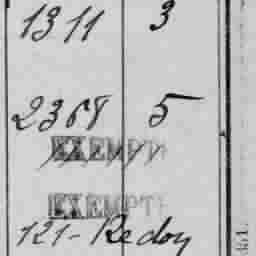 1311 3
2368 5
EXEMPT
EXEMPT
121- Redon